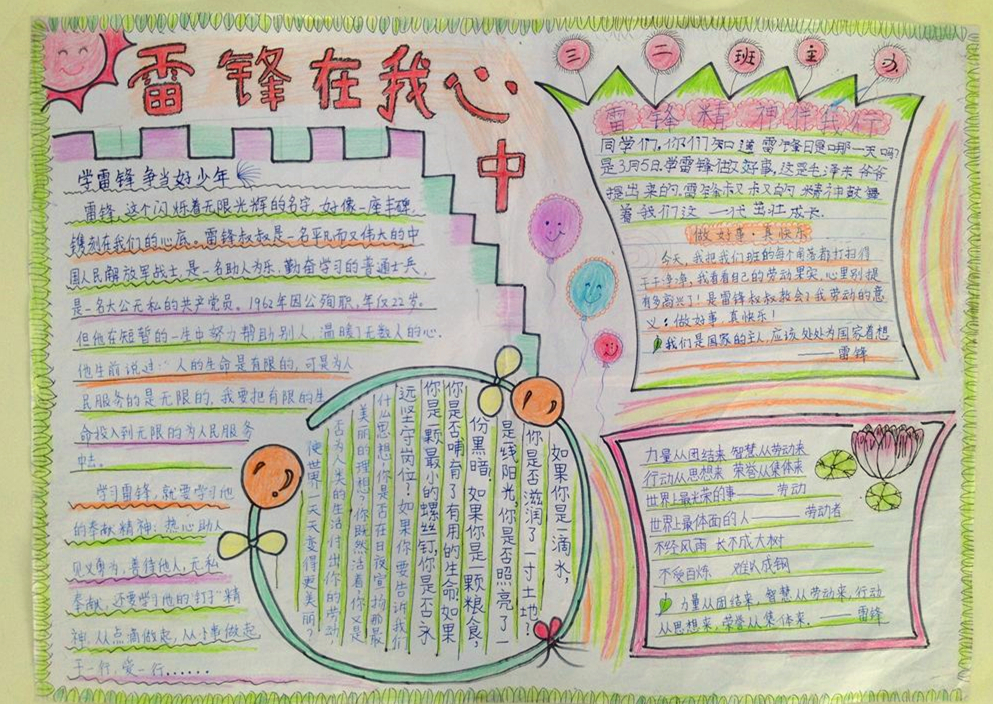 雷锋在我心
中
三二班主办
学雷锋争当好少年
雷锋,这个闪烁着无限光辉的名字,好像一座丰碑
镌刻在我们的心底。雷锋叔叔是一名平凡而又伟大的中
国人民解放军战士,是一名助人为乐,勤奋学习的普通士兵,
是一名大公无私的共产党员。1962年因公殉职,年仅22岁。
但他在短暂的一生中努力帮助别人,温暖了无数人的心.
他生前说过:"人的生命是有限的,可是为人
民服务的是无限的,我要把有限的生
命投入到无限的为人民服务
中去。
学习雷锋,就要学习他
的奉献精神:热心助人
见义勇为,善待他人,无私
奉献,还要学习他的"钉子"精
神,从点滴做起,从小事做起
干一行,爱一行......
如果你是一滴水,
你是否滋润了一寸土地?
是线阳光,你是否照亮了一
份黑暗。如果你是一颗粮食,
你是否哺育了有用的生命。如果
你是一颗最小的螺丝钉,你是否永
远坚守岗位?如果你要告诉我们
什么思想,你是否在日夜宣扬那最
美丽的理想?你既然活着,你又是
否为人类的生活付出你的劳动
使世界一天天变得更美丽?
雷锋精神伴我行
同学们,你们知道雷锋日是哪一天吗
是3月5日.学雷锋做好事,这是毛泽东爷爷
提出来的,雷锋叔叔的精神鼓舞
着我们这一代茁壮成长.
做好事·真快乐
今天,我把我们班的每个角落都打扫得
干干净净,我看看自己的劳动果实,心里别提
有多高兴了!是雷锋叔叔教会了我劳动的意
义:做好事 真快乐!
我们是国家的主人,应该处处为国家着想
——雷锋
力量从团结来 智慧从劳动来
行动从思想来 荣誉从集体来
世界上最光荣的事——劳动
世界上最体面的人——劳动者
不经风雨 长不成大树
不受百炼 难以成钢
力量从团结来,智慧从劳动来,行动
从思想来,荣誉从集体来,——雷锋